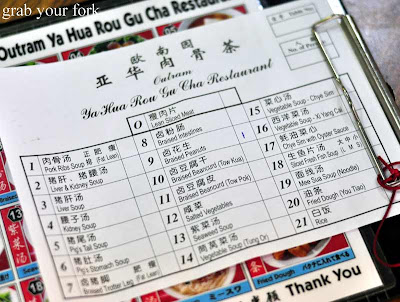 grab your fork
Outram Ya Hua Rou Gu Cha Restaurant
欧南园
亚华肉骨茶
Outram
Ya Hua Rou Gu Cha Restaurant
Table No.
No. of People
O 瘦肉片
Lean Sliced Meat
1 肉骨汤 正 肥 瘦
Pork Ribs Soup 排 (Fat Lean)
2 猪肝、猪腰汤
Liver & Kidney Soup
3 猪肝汤
Liver Soup
4 腰子汤
Kidney Soup
5 猪尾汤
Pig's Tail Soup
6 猪肚汤
Pig's Stomach Soup
7
Braised Trotter Leg (Fat, Lean)
8 卤粉肠
Braised Intestines
9 卤花生
Braised Peanuts
10 卤豆腐干
Braised Beancurd (Tow Kua)
11 卤豆腐皮
Braised Beancurd (Tow Pok)
12 咸菜
Salted Vegetables
13 紫菜汤
Seaweed Soup
14 茼蒿菜汤
Vegetable Soup (Tung Or)
15 菜心汤
Vegetable Soup - Chye Sim
16 西洋菜汤
Vegetable Soup - Xi Yang Cai
17 蚝油菜心
Chye Sim with Oyster Sauce
18 生鱼片汤 大 中 小
Sliced Fresh Fish Soup (L M S)
19 面线汤
Mee Sua Soup (Noodle)
20 油条
Fried Dough (You Tiao)
21 白饭
Rice
13
14
Fried Dough
Thank You